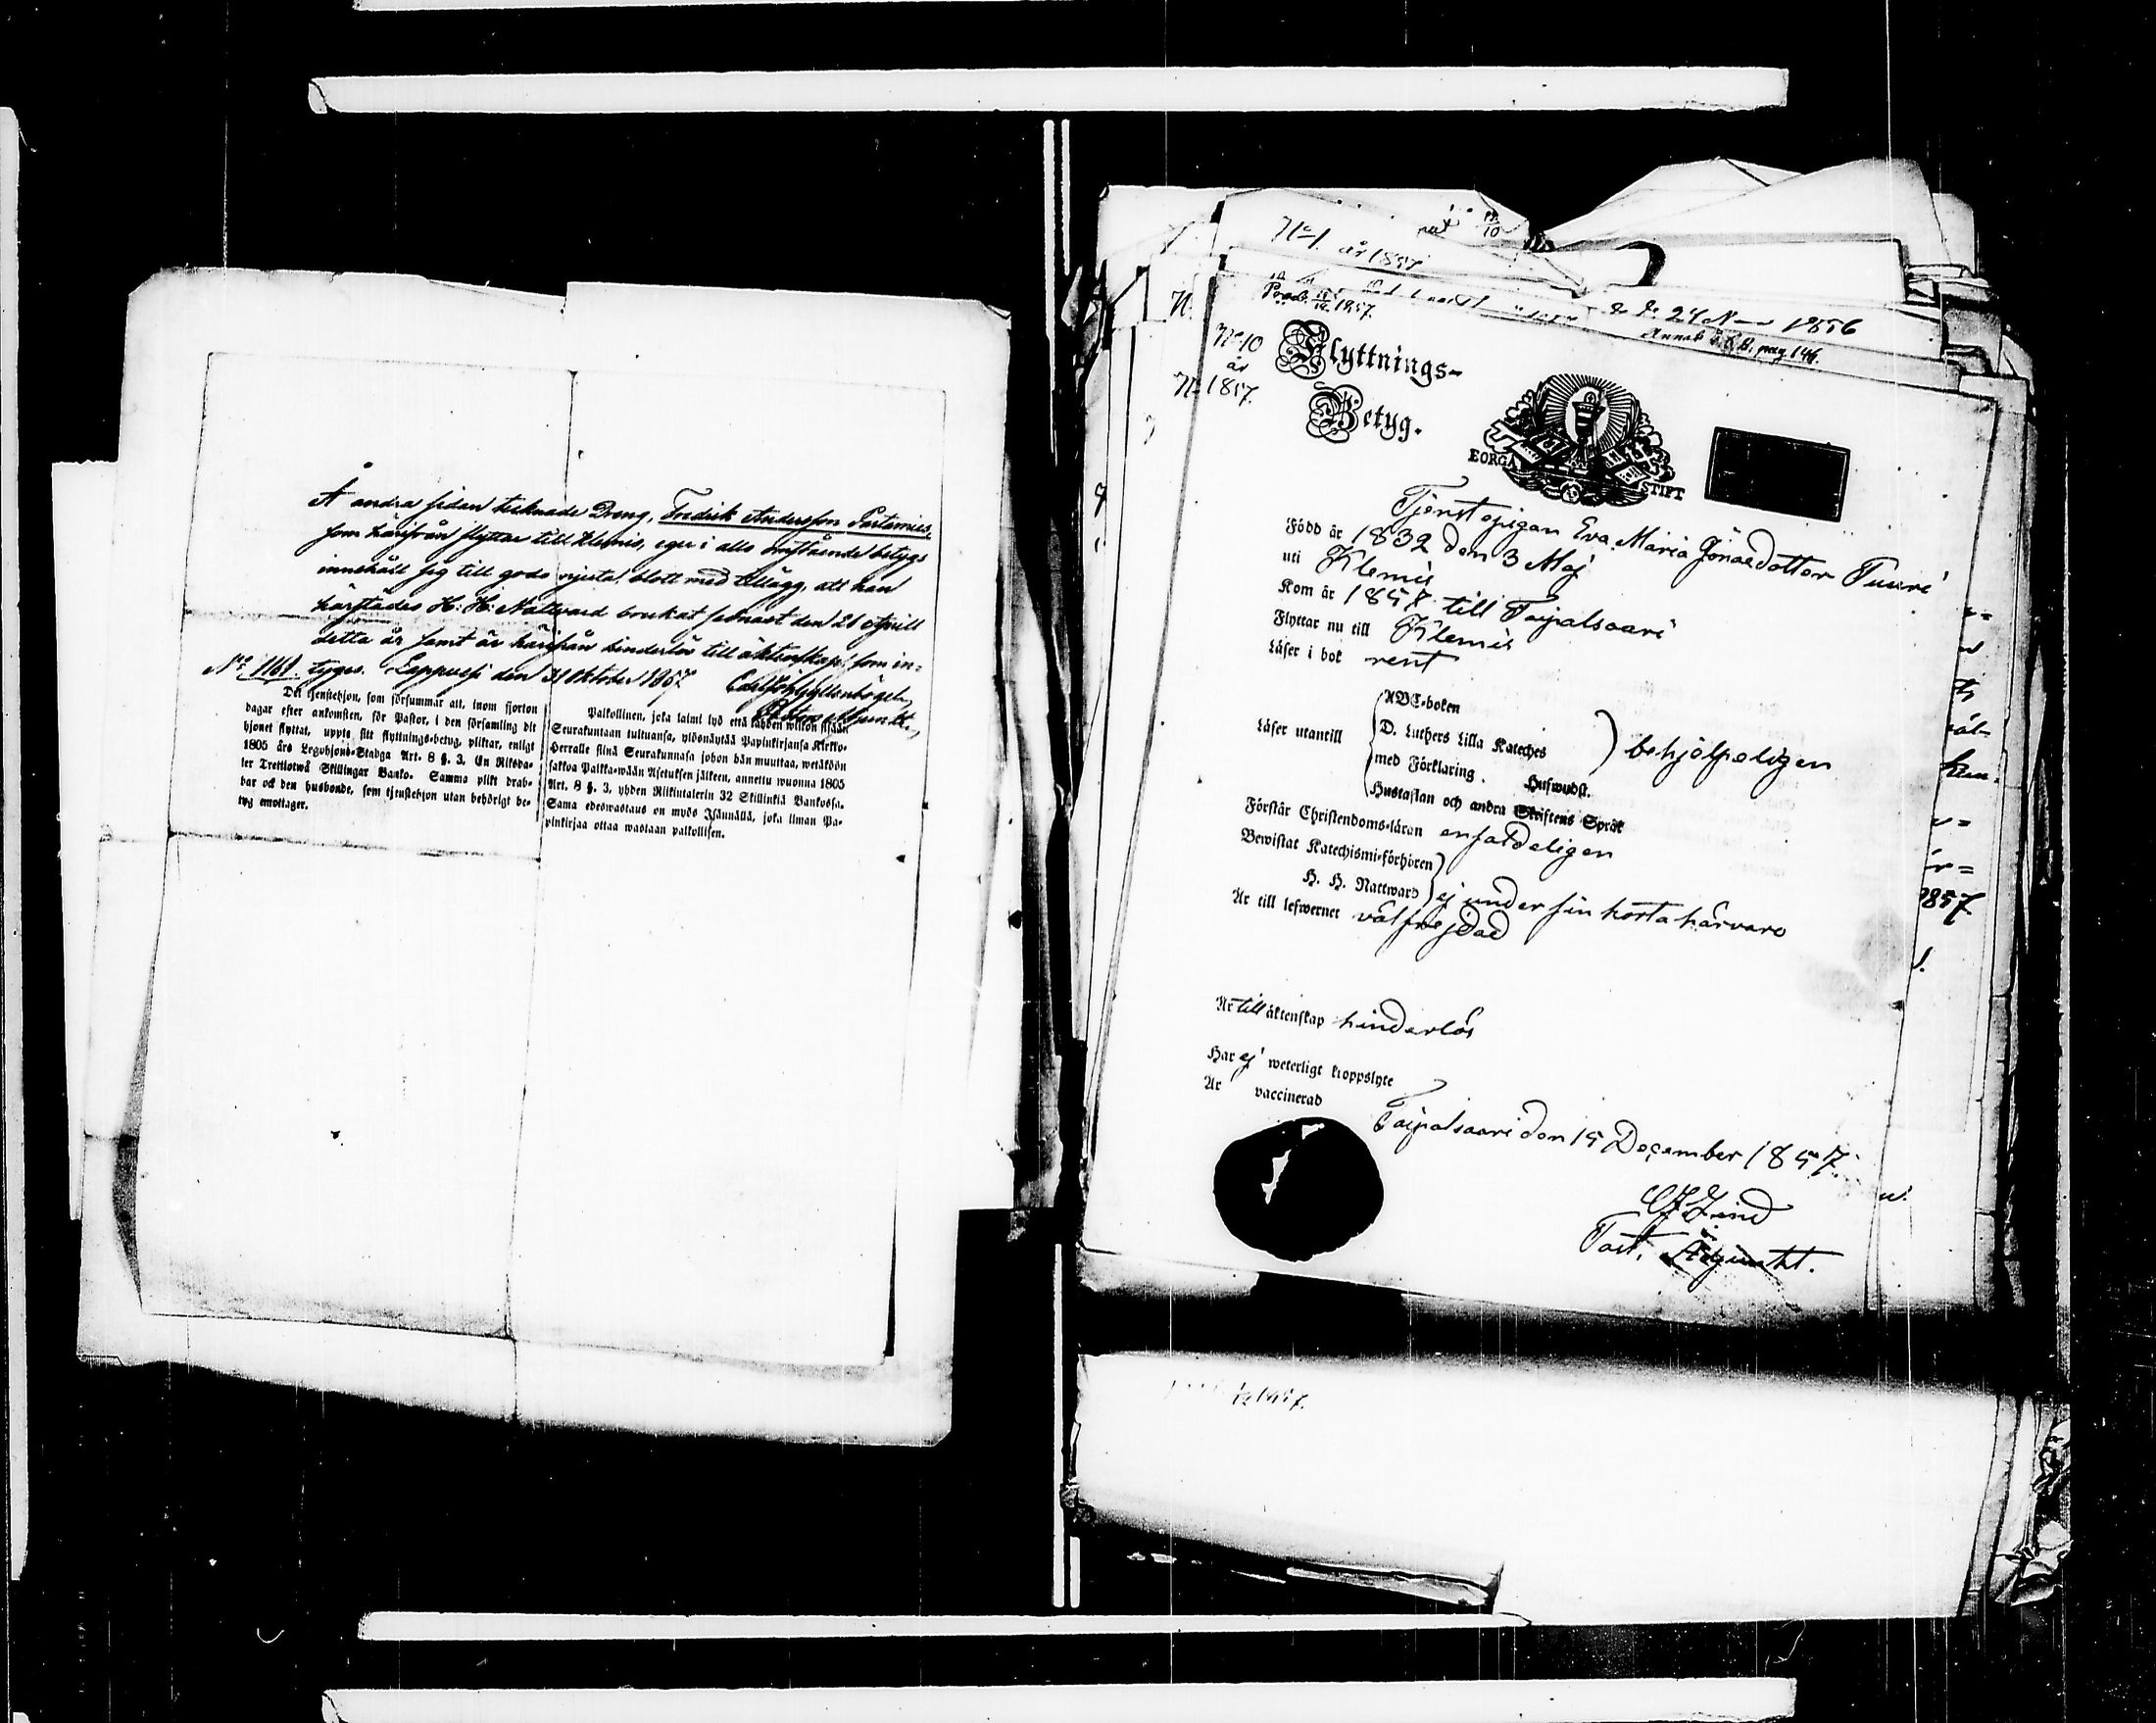 Å andra sidan tecknade Dreng, Fredrik Andersson Partamies,
som härifrån flyttar till Klemis, eger i allo omstående betygs
innehåll sig till godo njuta, blott med tillägg, att han
härstädes H: H: Nattvard brukat sednast den 26 Aprill
detta år samt är härifrån hinderlös till äktenskap, som in-
tygas. Lappvesi den 31 Oktober 1857
No 1161.
Det tjenstehjon, som försummar att, inom fjorton
dagar efter ankomsten, för Pastor, i den församling dit
hjonet flyttat, uppte sitt flyttnings-betyg, pliktar, enligt
1805 års Legohjons-Stadga Art. 8 §. 3. En Riksda-
ler Trettiotwå Skillingar Banko. Samma plikt drab-
bar ock den husbonde, som tjenstehjon utan behörigt be-
tyg emottager.
Palkollinen, joka laimi lyö että tähden wiikon sisään
Seurakuntaan tultuansa, ylösnäyttää Papinkirjansa Kirkko-
Herralle siinä Seurakunnasa johon hän muuttaa, wetäköön
sakkoa Palkka-wään Asetuksen jälkeen, annettu wuonna 1805
Art. 8 §. 3, yhden Riikintalerin 32 Skillinkiä Bankossa.
Sama edeswastaus on myös Isännällä, joka ilman Pa-
pinkirjaa ottaa wastaan palkollisen.
No 1.
år 1857
24 1856
Annab. pag. 146.
Prod. 1857.
No 10
år
1857.
Flyttnings-
Betyg.
BORGÅ STIFT
Tjenstepigan Eva Maria Jönaedotter Tuuri
Född år 1832 den 3 Maj
uti Klemis
Kom år 1857 till Taipalsaari
Flyttar nu till Klemis
Läser i bok rent
Läser utantill
ABC-boken
D. Luthers Lilla Kateches
med Förklaring. Hufwudst.
Hustaflan och andra Skriftens Språk
behjelpeligen
Förstår Christendoms-läran enfaldeligen
Bewistat Katechismi-förhören
H. H. Nattward
ej under sin korta härvaro
Är till lefwernet välfrejdad
Är till äktenskap hinderlös
Har ej weterligt kroppslyte
Är vaccinerad
Taipalsaari den 15 December 1857.
Past. Adjunkt.
1857
1857.